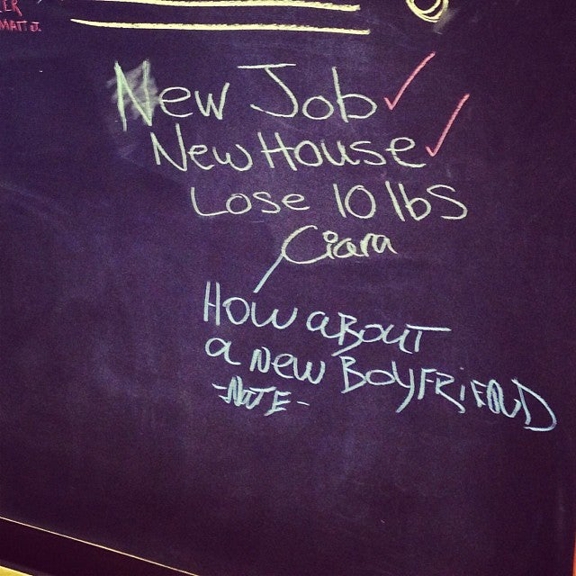 MATT J.
New Job
New House
Lose 10 lbs
Ciara
How about
a new Boyfriend
-Nate-